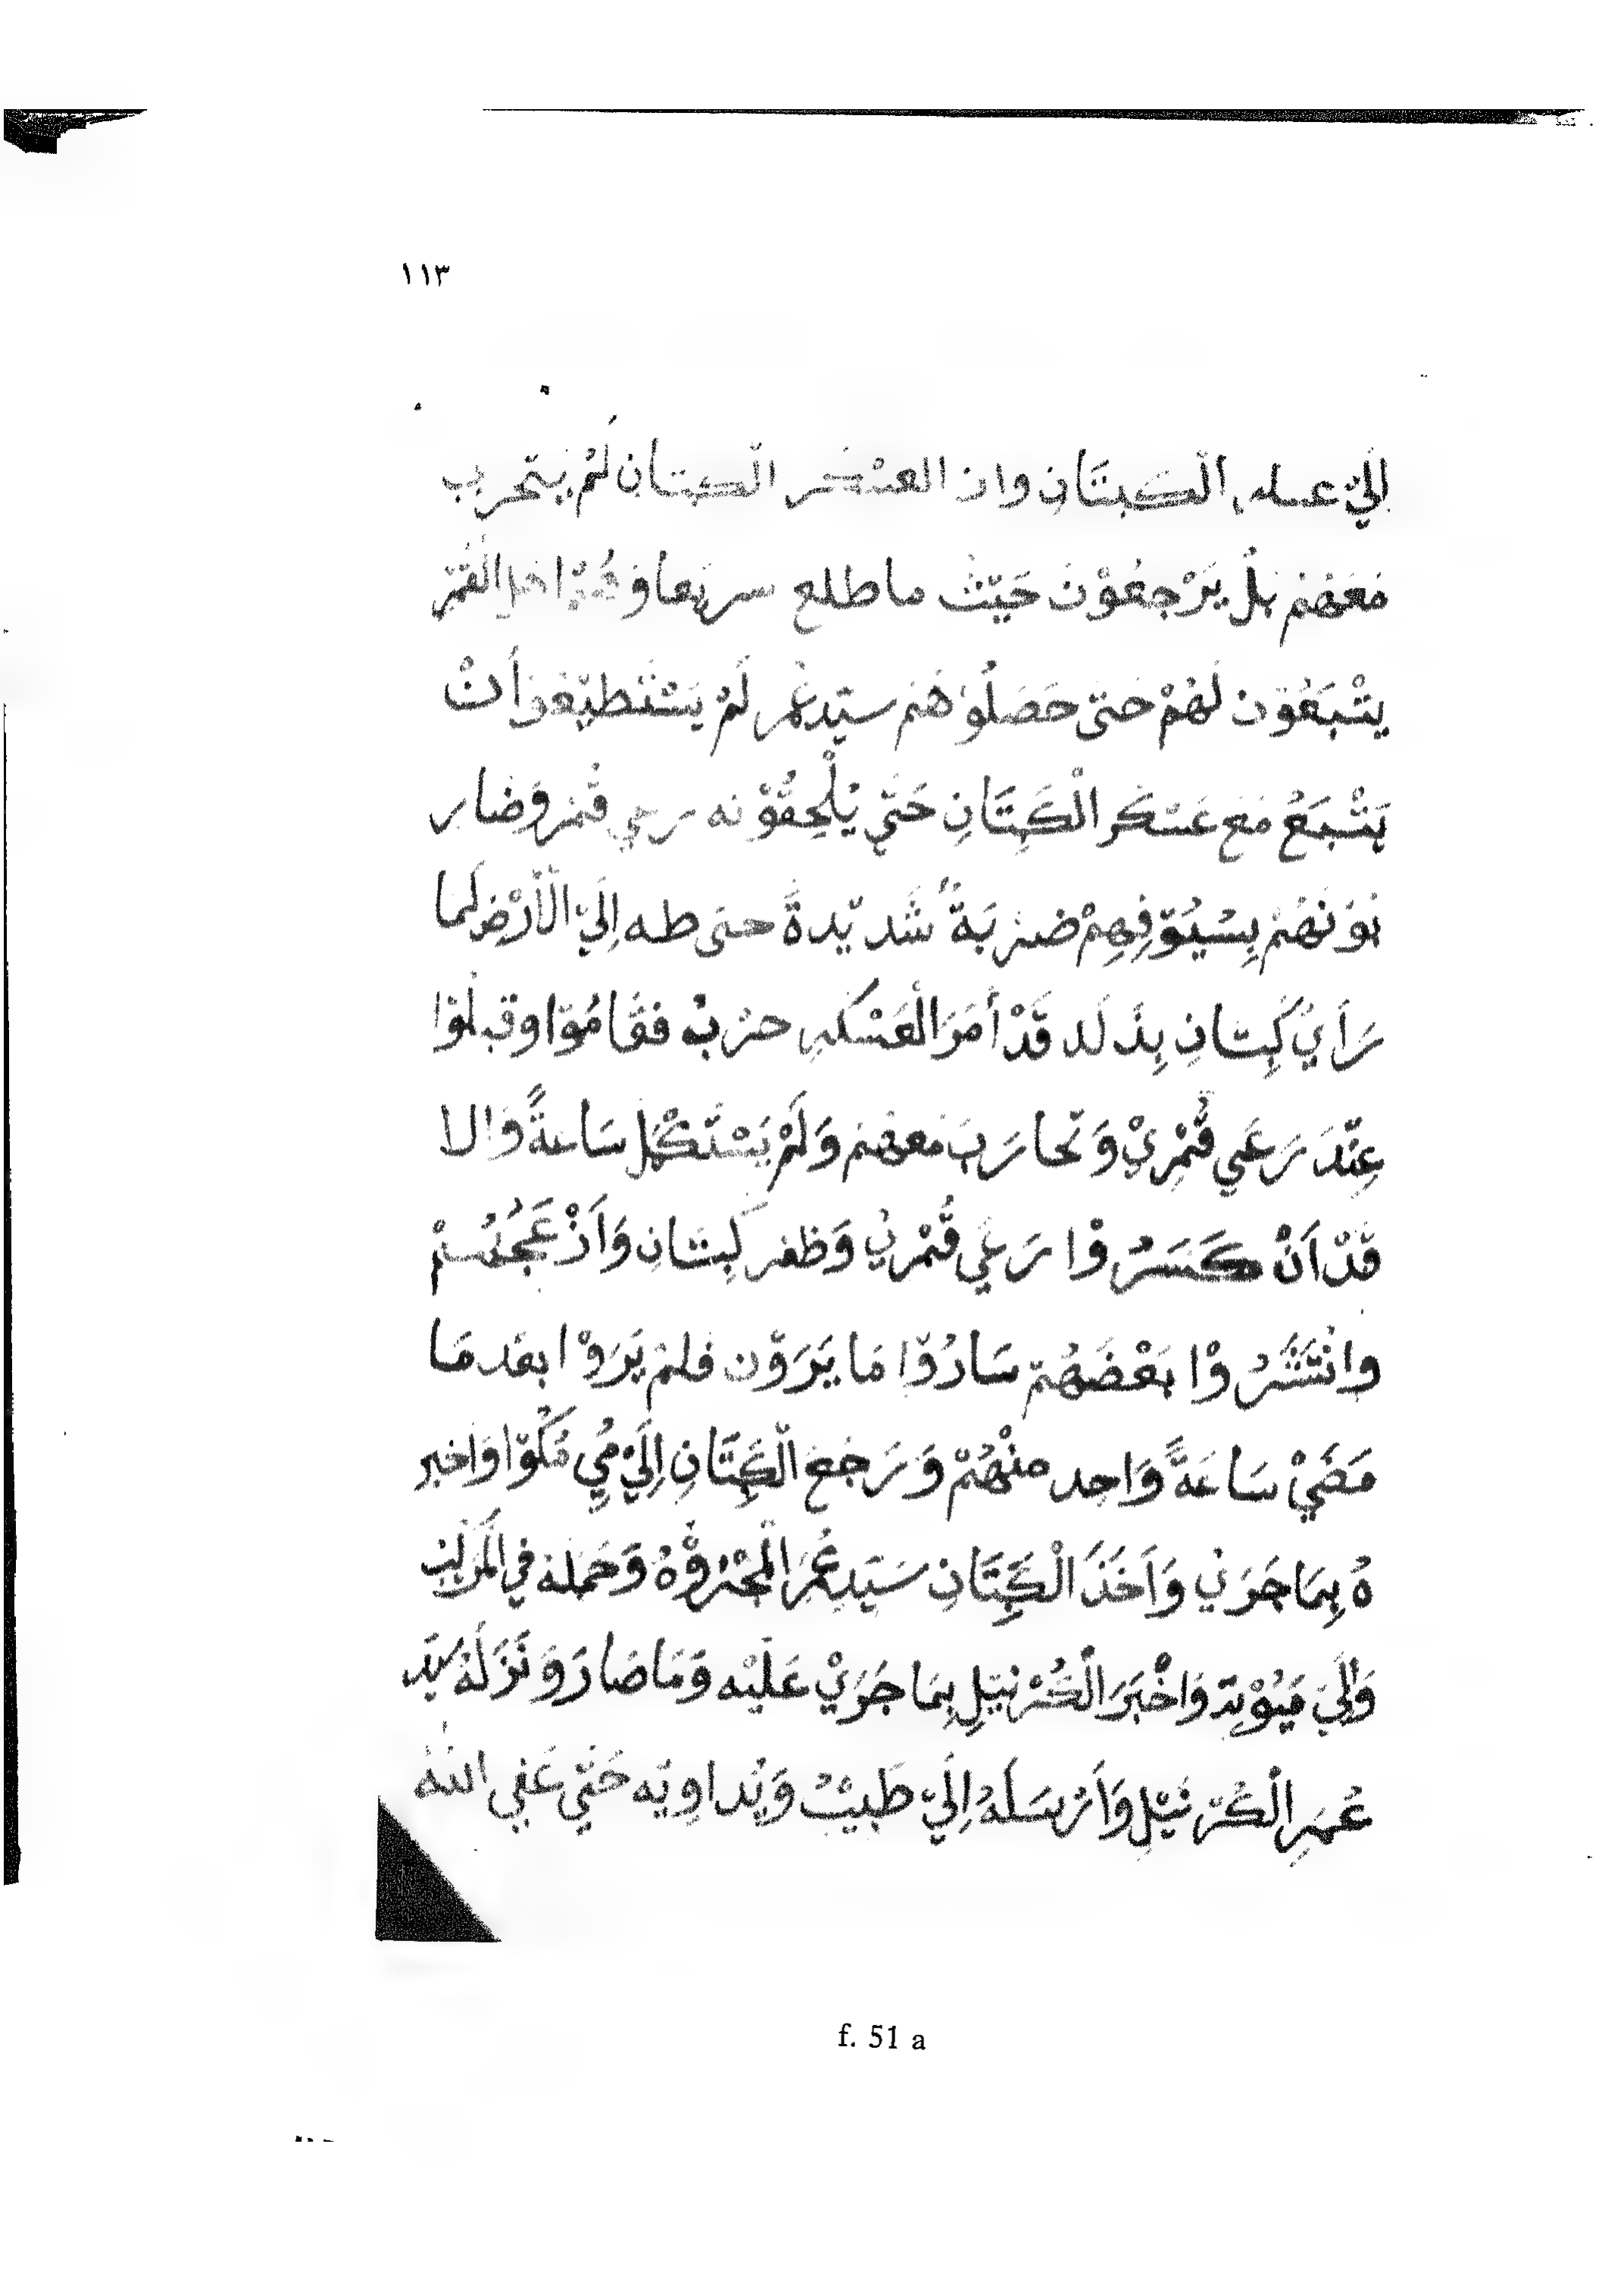 ١١٣
إلي عسله الكبتان وان العسكر الكبتان لم يتحرب
معهم بل يرجعون حيث ما طلع سريعا وهم اهل القمر
يتبعون لهم حتى حصلوهم سيد عمر لم يستطيعوا أن
يتبع مع عسكر الكبتان حتى يلحقونه رعي قمر وضار
بونهم بسيوفهم ضربة شديدة حتى طه إلي الأرض لما
رأي كبتان بذلد قد أمر العسكر حرب فقاموا وقبلوا
عند رعي قمري وتحارب معهم ولم يستكمل ساعة والا
قد ان كسروا رعي قمري وظفر كبتان واذ عجلهم
وانتشروا بعضهم ساروا ما يرون فلم يروا بعد ما
مضي ساعة واحد منهم ورجع الكبتان إلي مي مكوا واخبر
ه بما جري واخذ الكبتان سيد عمر المجروه وحمله في المركب
والي ميوته واخبر الكرنيل بما جري عليه وما صار ونزله سيد
عمر الكرنيل وأرسله إلي طبيب ويداويه حتي عفي الله
f. 51 a